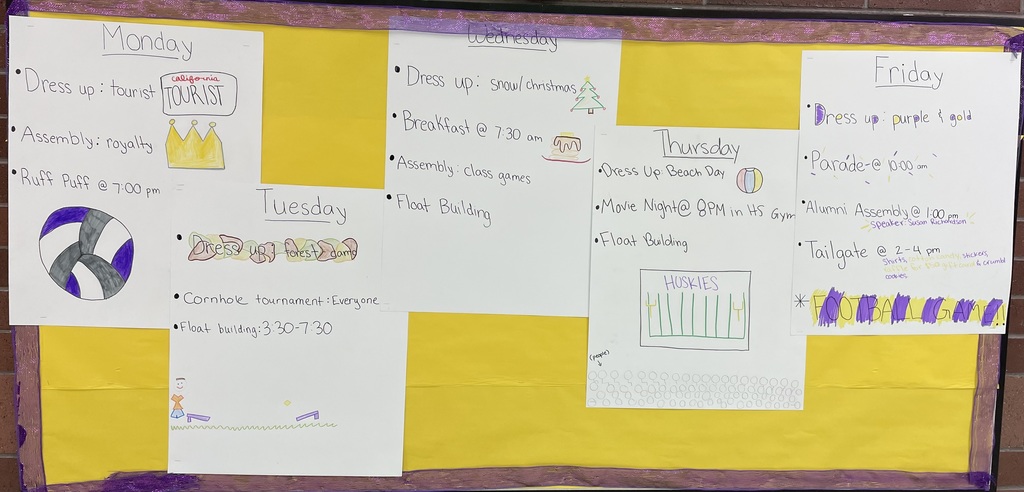 Monday
• Dress up: tourist
california
TOURIST
• Assembly: royalty
• Ruff Puff @ 7:00 pm
Tuesday
• Dress up: forest damb
• Cornhole tournament: Everyone
• Float building: 3:30-7:30
Wednesday
• Dress up: snow/christmas
• Breakfast @ 7:30 am
• Assembly: class games
• Float Building
Thursday
• Dress Up: Beach Day
• Movie Night @ 8PM in HS Gym
• Float Building
HUSKIES
(people)
Friday
• Dress up: purple & gold
• Parade - @ 10:00 am
• Alumni Assembly @ 1:00 pm
speaker: Susan Richardson
• Tailgate @ 2-4 pm
shirts, stickers,
& crumbl
cookies
* FOOTBALL GAME!!